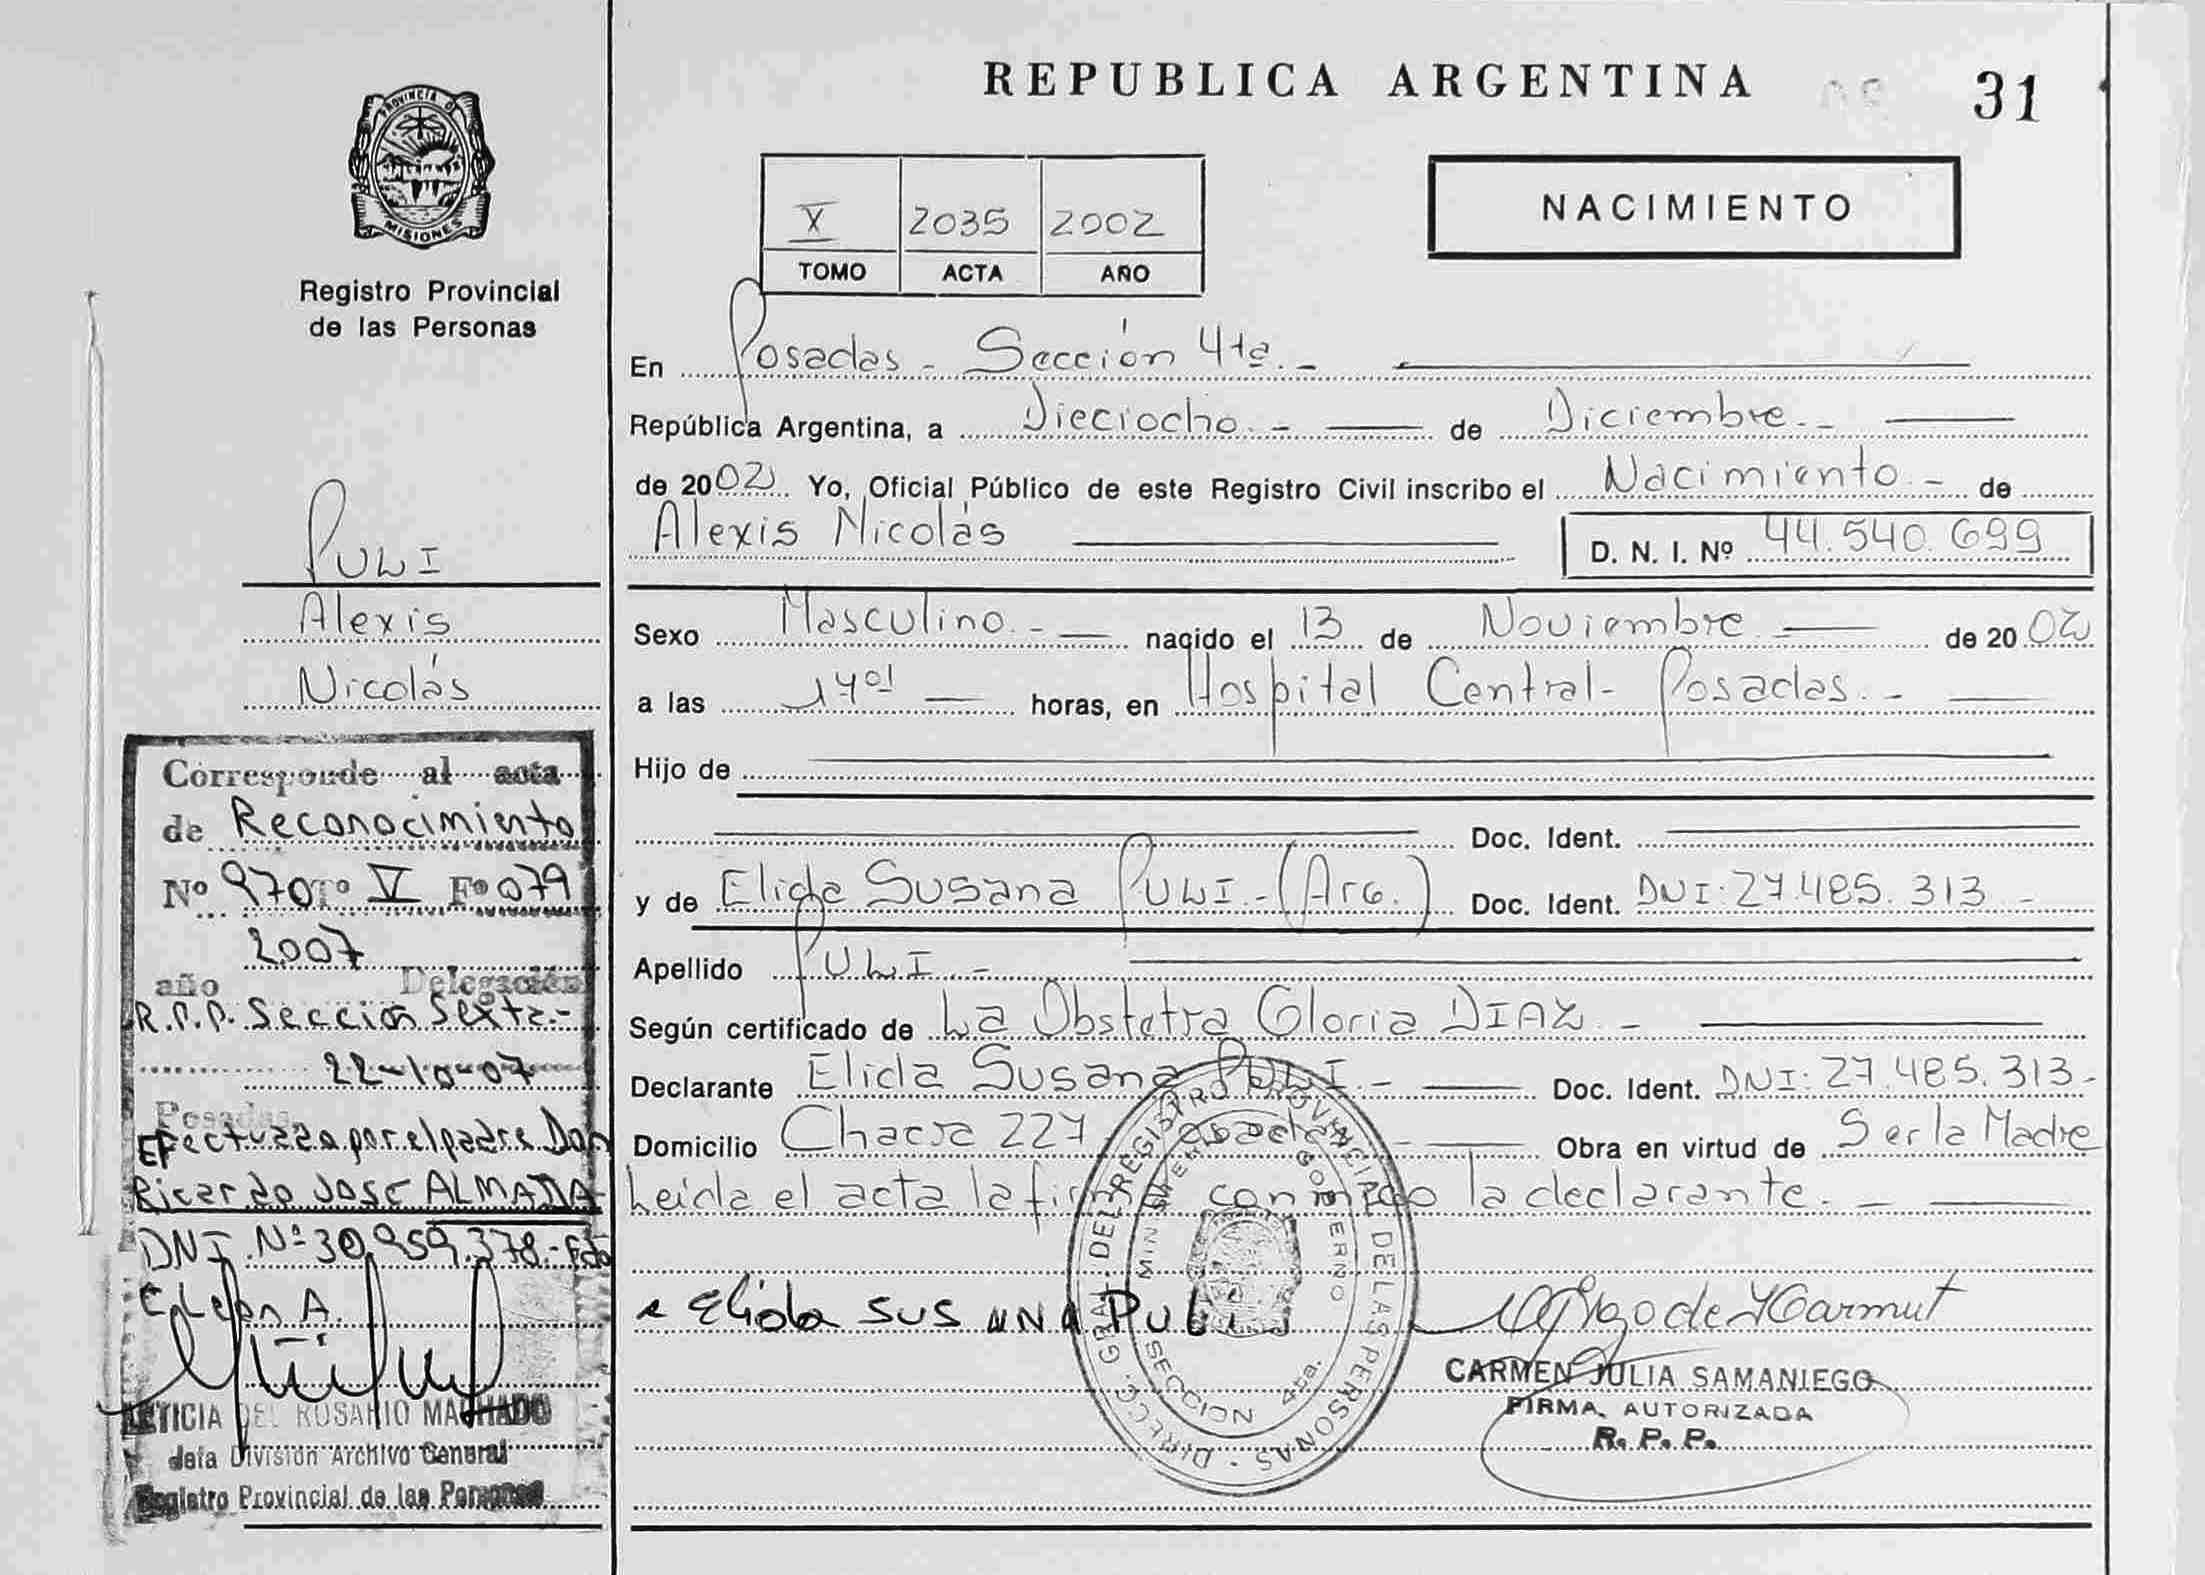 REPUBLICA ARGENTINA
31
PROVINCIA D
MISIONES
Registro Provincial
de las Personas
X 2035 2002
TOMO ACTA AÑO
NACIMIENTO
En Posadas - Sección 4ta. -
República Argentina, a Dieciocho. - de Diciembre. -
de 2002 Yo, Oficial Público de este Registro Civil inscribo el Nacimiento - de
Alexis Nicolás D. N. I. Nº 44.540.699
Sexo Masculino. - nacido el 13 de Noviembre de 2002
a las horas, en Hospital Central - Posadas. -
Hijo de
Doc. Ident.
y de Elida Susana PULI. - (Arg.) Doc. Ident. DNI: 27.485.313 -
Apellido PULI. -
Según certificado de La Obstetra Gloria DIAZ. -
Declarante Elida Susana PULI. - Doc. Ident. DNI: 27.485.313 -
Domicilio Chacra 227 Posadas - Obra en virtud de Ser la Madre
Leída el acta la firma conmigo la declarante. -
Elida SUSANA PULI
CARMEN JULIA SAMANIEGO
FIRMA AUTORIZADA
R. P. P.
DIRECC. GRAL. DEL REGISTRO PROVINCIAL DE LAS PERSONAS -
MINISTERIO GOBIERNO
SECCION 4ta.
PULI
Alexis
Nicolás
Corresponde al acta
de Reconocimiento
Nº 970 Tº V Fº 079
2007
año Delegación
R.P.P. Sección Sexta. -
22-10-07
Posadas
Efectuado por el padre Don
Ricardo José ALMADA
DNI. Nº 30.959.378.- Fdo
LETICIA DEL ROSARIO MACHADO
Jefa División Archivo General
Registro Provincial de las Personas